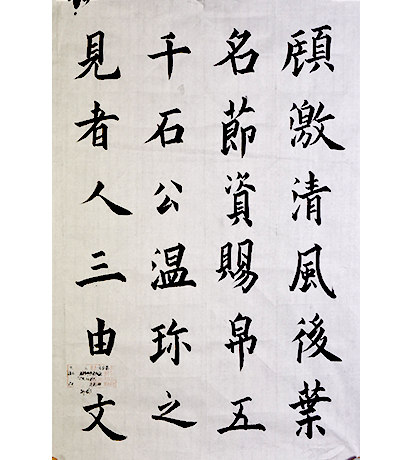 頋激清風後葉
名節資賜帛五
千石公温珎之
見者人三由文